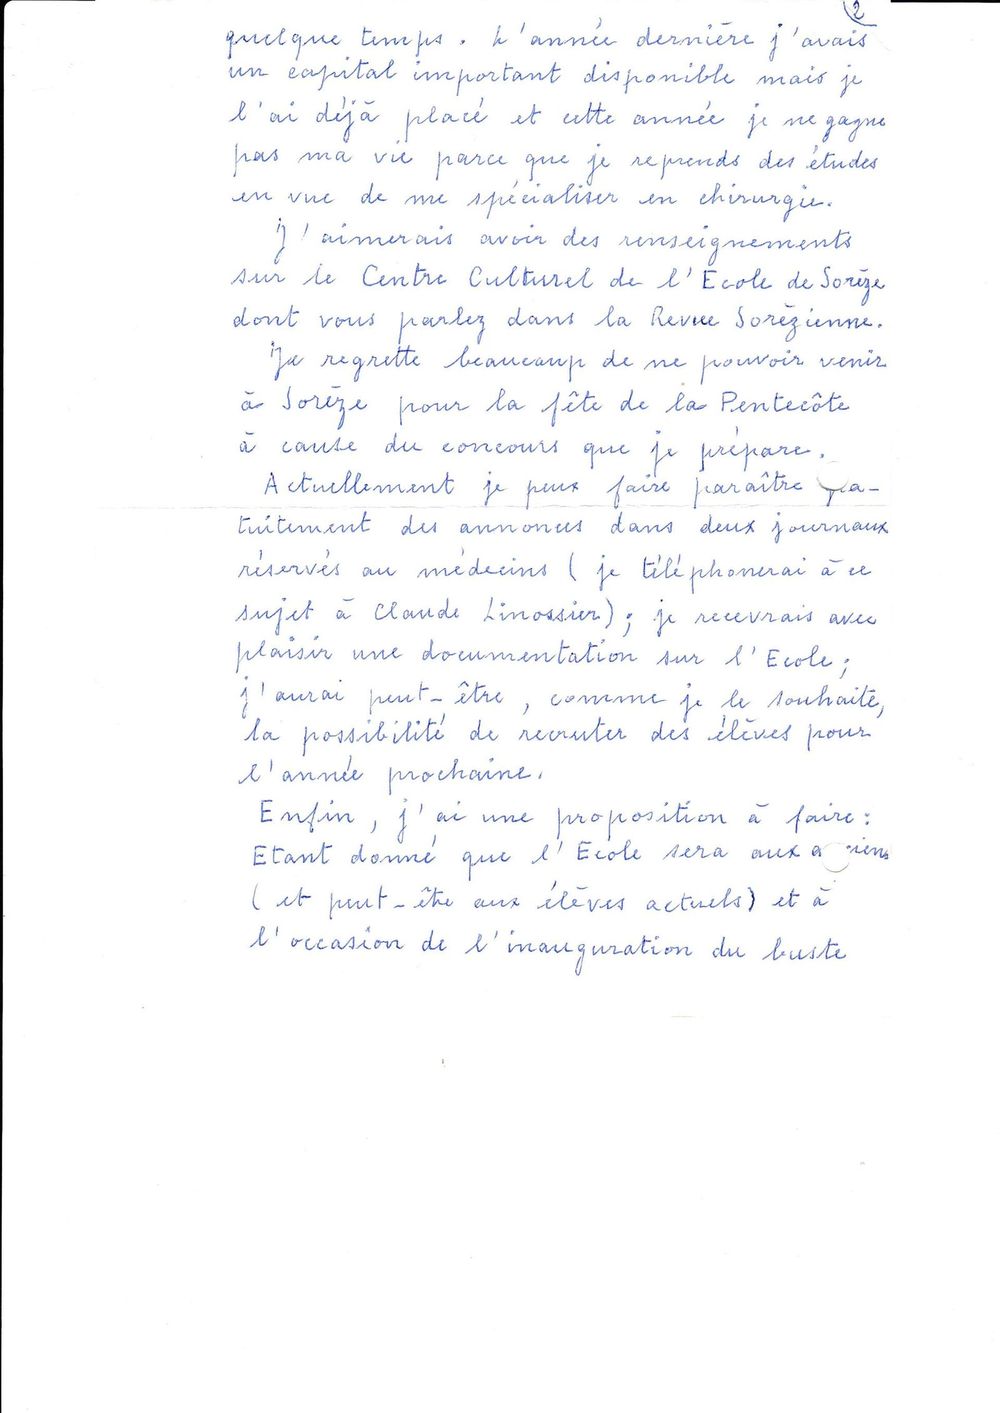 2
quelque temps. L'année dernière j'avais
un capital important disponible mais je
l'ai déjà placé et cette année je ne gagne
pas ma vie parce que je reprends des études
en vue de me spécialiser en chirurgie.
J'aimerais avoir des renseignements
sur le Centre Culturel de l'Ecole de Sorèze
dont vous parlez dans la Revue Sorèzienne.
Je regrette beaucoup de ne pouvoir venir
à Sorèze pour la fête de la Pentecôte
à cause du concours que je prépare.
Actuellement je peux faire paraître gra-
tuitement des annonces dans deux journaux
réservés au médecins (je téléphonerai à ce
sujet à Claude Linossier); je recevrais avec
plaisir une documentation sur l'Ecole;
j'aurai peut-être, comme je le souhaite,
la possibilité de recruter des élèves pour
l'année prochaine.
Enfin, j'ai une proposition à faire:
Etant donné que l'Ecole sera aux anciens
(et peut-être aux élèves actuels) et à
l'occasion de l'inauguration du buste